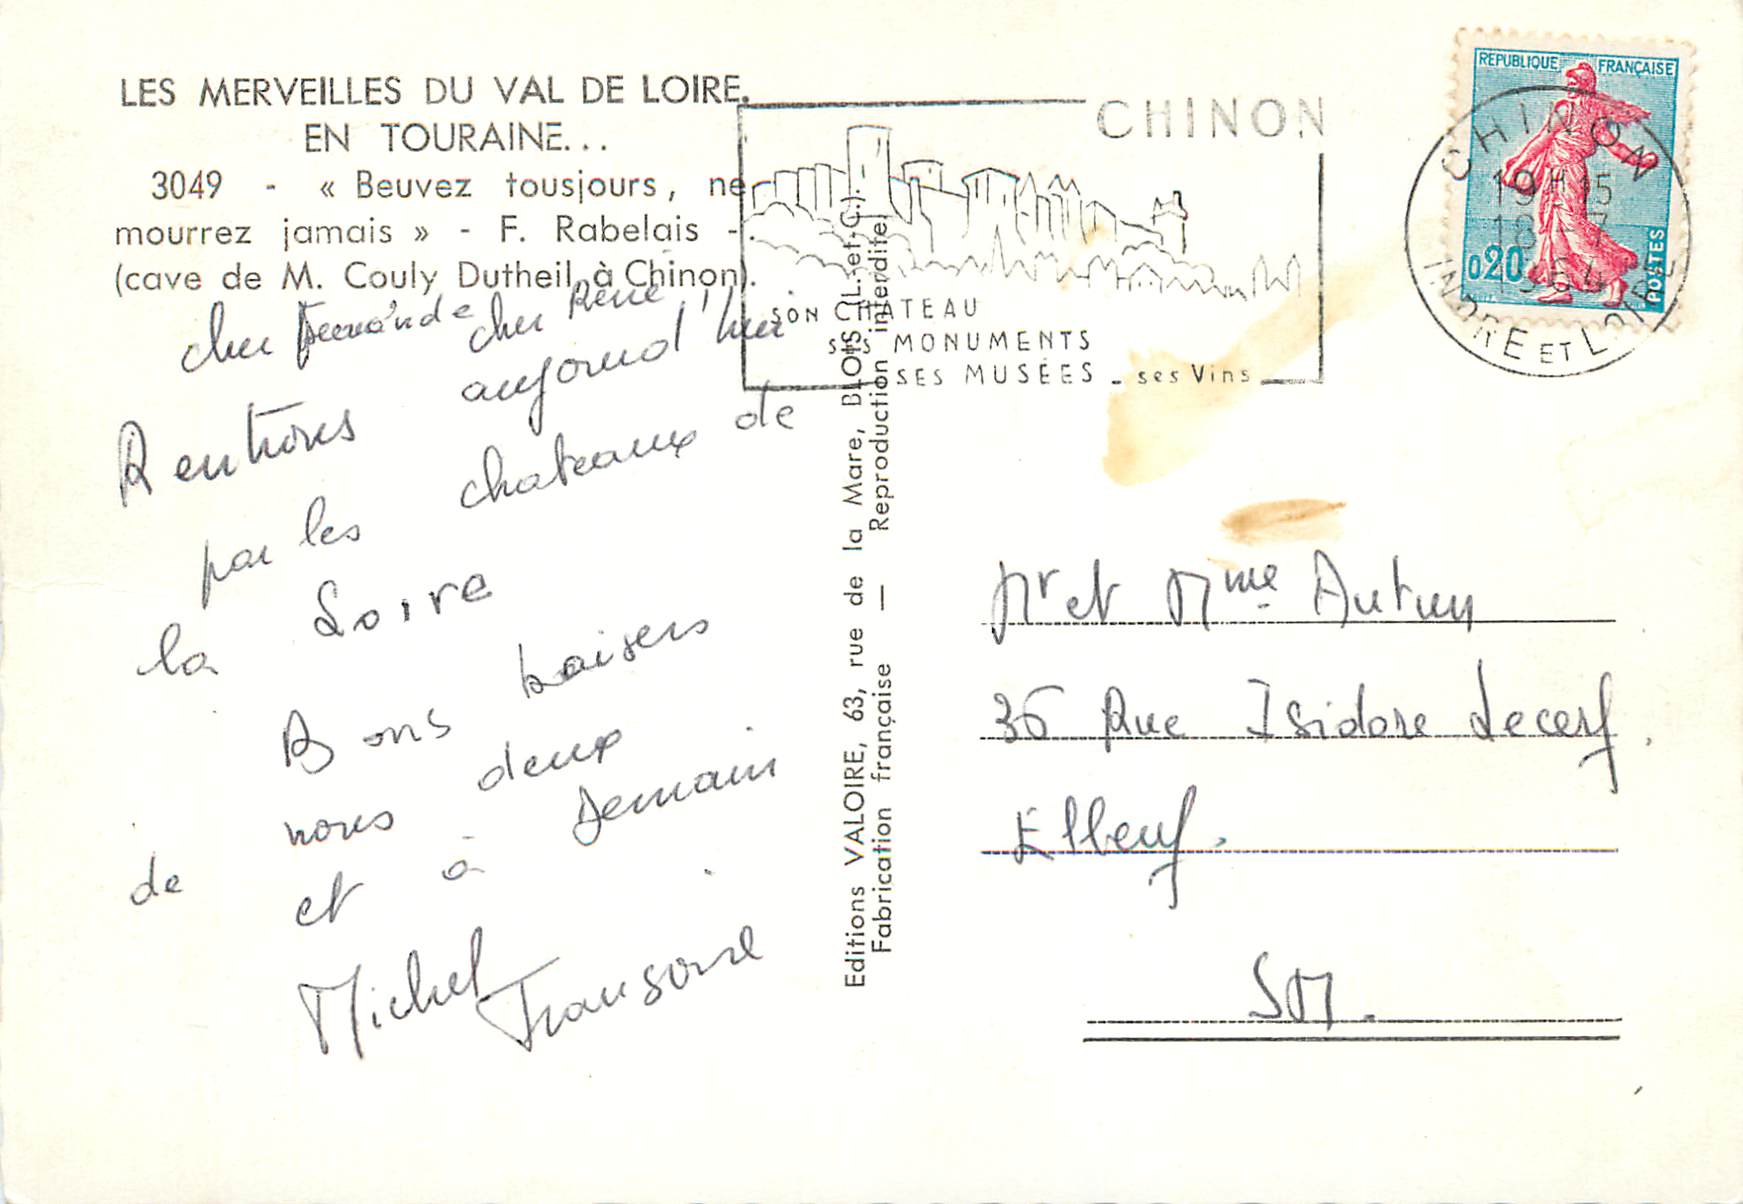 LES MERVEILLES DU VAL DE LOIRE.
EN TOURAINE...
3049 - « Beuvez tousjours, ne
mourrez jamais » - F. Rabelais -.
(cave de M. Couly Dutheil à Chinon).
cher Fernande cher René
Rentrons aujourd'hui
par les chateaux de
la Loire
Bons baisers
de nous deux
et à Demain
Michel Fransoire
Editions VALOIRE, 63, rue de la Mare, BLOIS (L.-et-C.).
Fabrication française — Reproduction interdite
CHINON
SON CHATEAU
SES MONUMENTS
SES MUSÉES - ses Vins
REPUBLIQUE FRANÇAISE
0,20
POSTES
CHINON
19H15
18-7
1964
INDRE ET LOIRE
Mr et Mme Autun
36 Rue Isidore Lecerf.
Elbeuf.
SM.